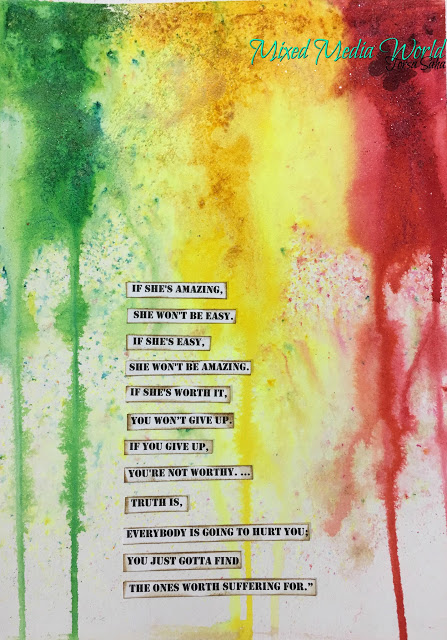 Mixed Media World
IF SHE'S AMAZING,
SHE WON'T BE EASY.
IF SHE'S EASY,
SHE WON'T BE AMAZING.
IF SHE'S WORTH IT,
YOU WON'T GIVE UP.
IF YOU GIVE UP,
YOU'RE NOT WORTHY. ...
TRUTH IS,
EVERYBODY IS GOING TO HURT YOU;
YOU JUST GOTTA FIND
THE ONES WORTH SUFFERING FOR."